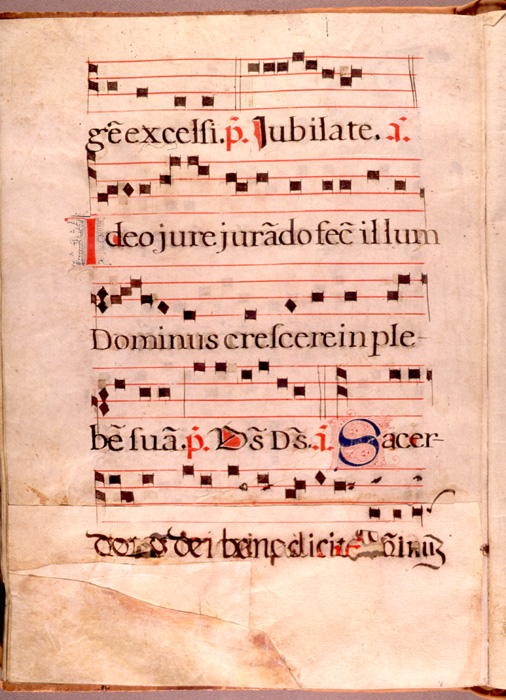 gē excelsi. p̄. Jubilate. ā.
Ideo jure jurādo fec̄ illum
Dominus crescere in ple-
bē suā. p̄. Dīs Dīs. ā. Sacer-
dei benedicite